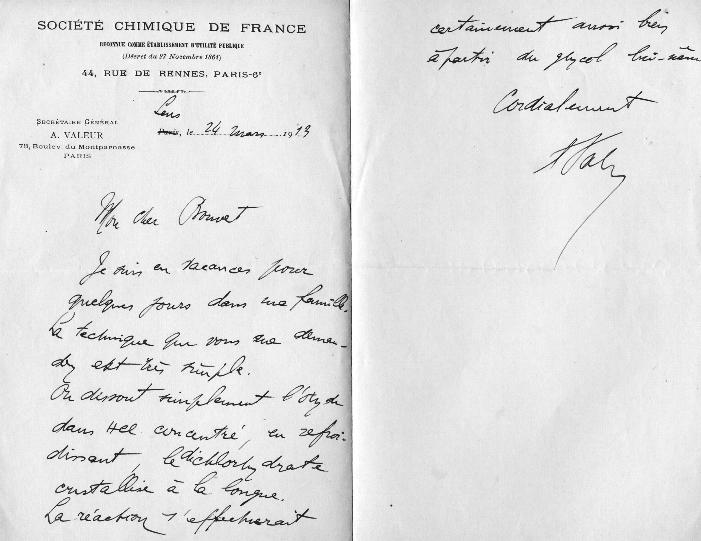 SOCIÉTÉ CHIMIQUE DE FRANCE
RECONNUE COMME ÉTABLISSEMENT D'UTILITÉ PUBLIQUE
(Décret du 27 Novembre 1864)
44, RUE DE RENNES, PARIS-6e
SECRÉTAIRE GÉNÉRAL
A. VALEUR
75, Boulev. du Montparnasse
PARIS
Lens
Paris, le 24 mars 1913
Mon cher
Je suis en vacances pour
quelques jours dans ma famille.
La technique que vous me deman-
dez est très simple.
On dissout simplement l'oxyde
dans HCl concentré, en refroi-
dissant, le dichlorhydrate
cristallise à la longue.
La réaction s'effectuerait
certainement aussi bien
à partir du glycol lui-même
Cordialement